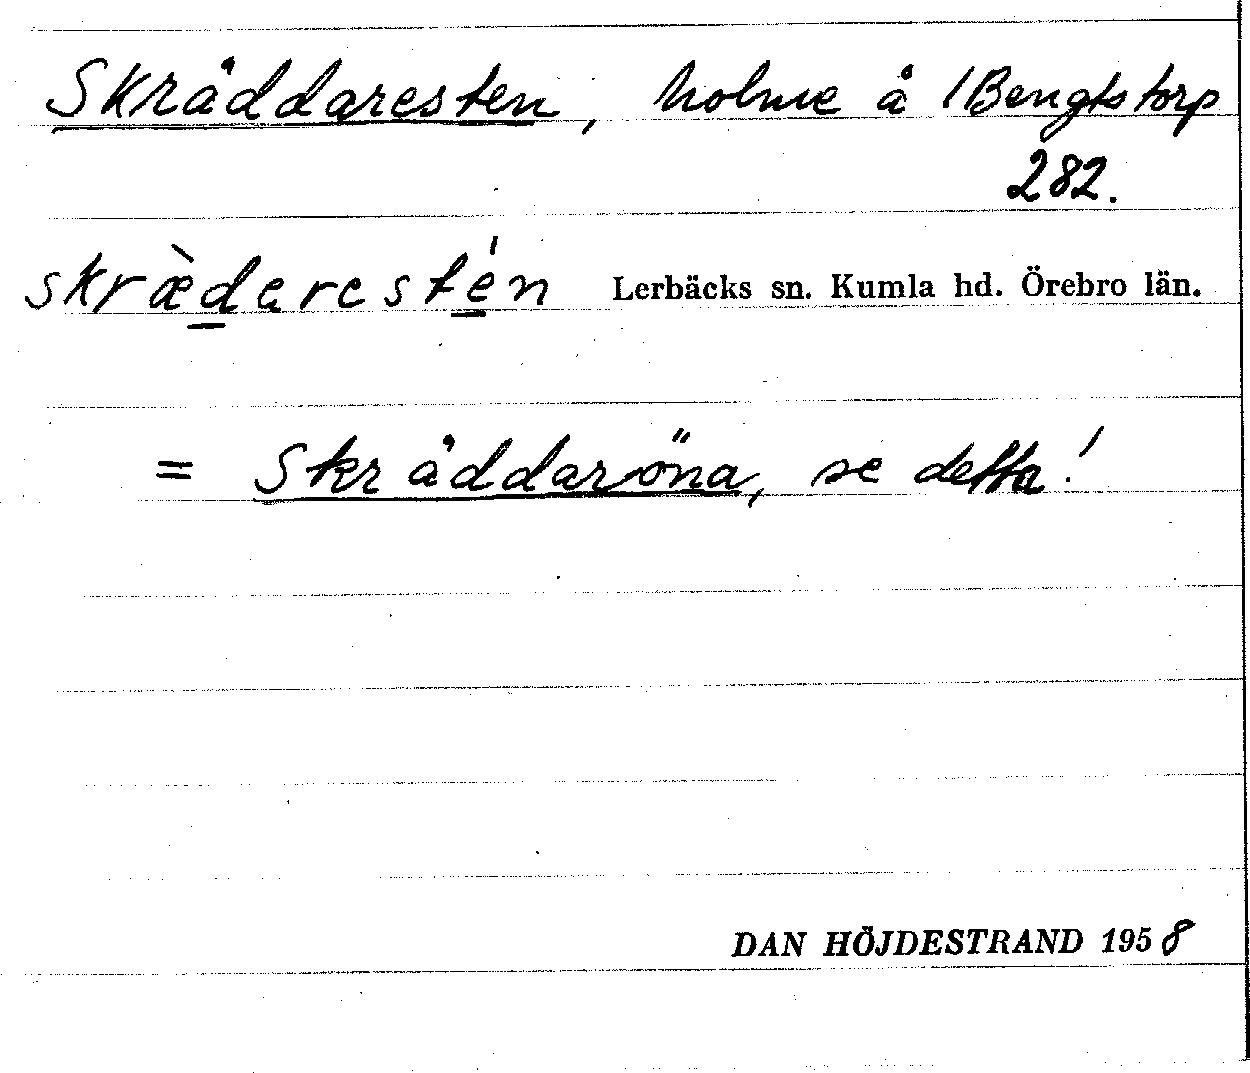 Skräddaresten, holme å 1Bengtstorp
282.
skræ̀daresté̱n Lerbäcks sn. Kumla hd. Örebro län.
= Skräddaröna, se detta!
DAN HÖJDESTRAND 1958